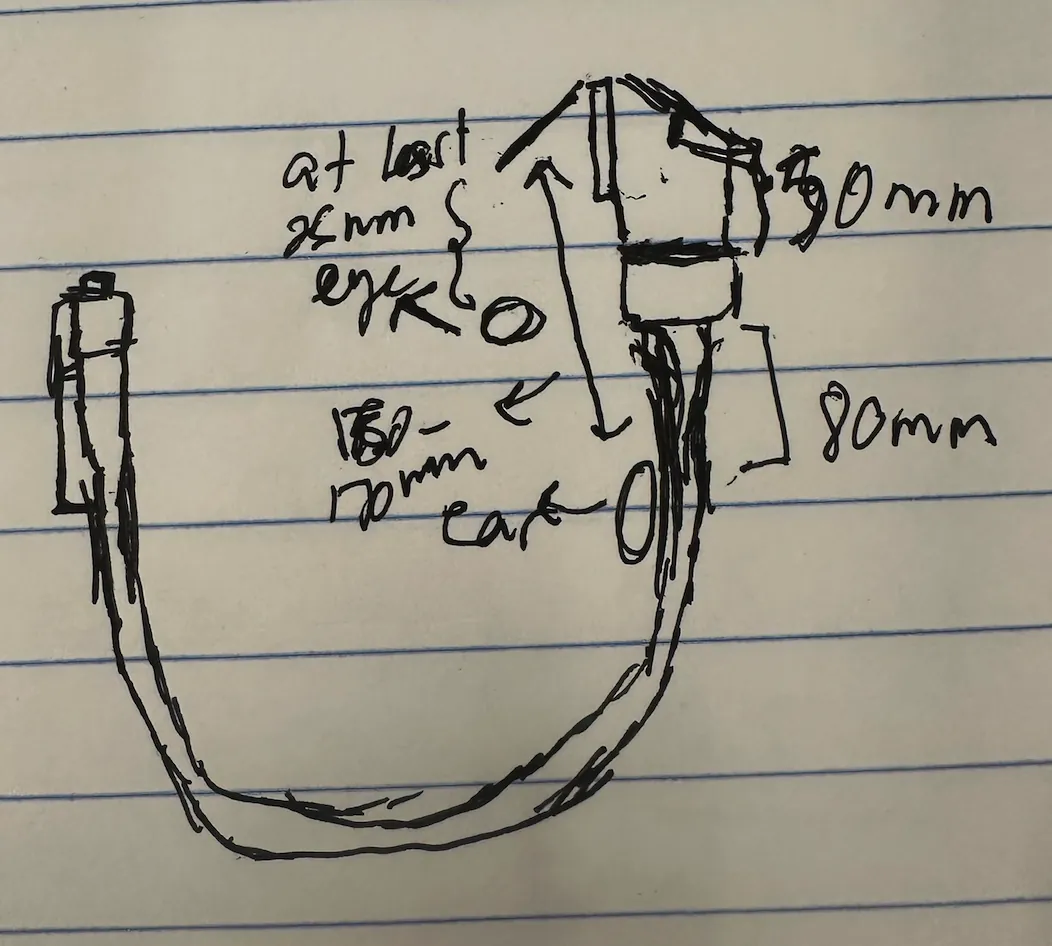 at least
25mm
eye
50mm
80mm
170mm
ear